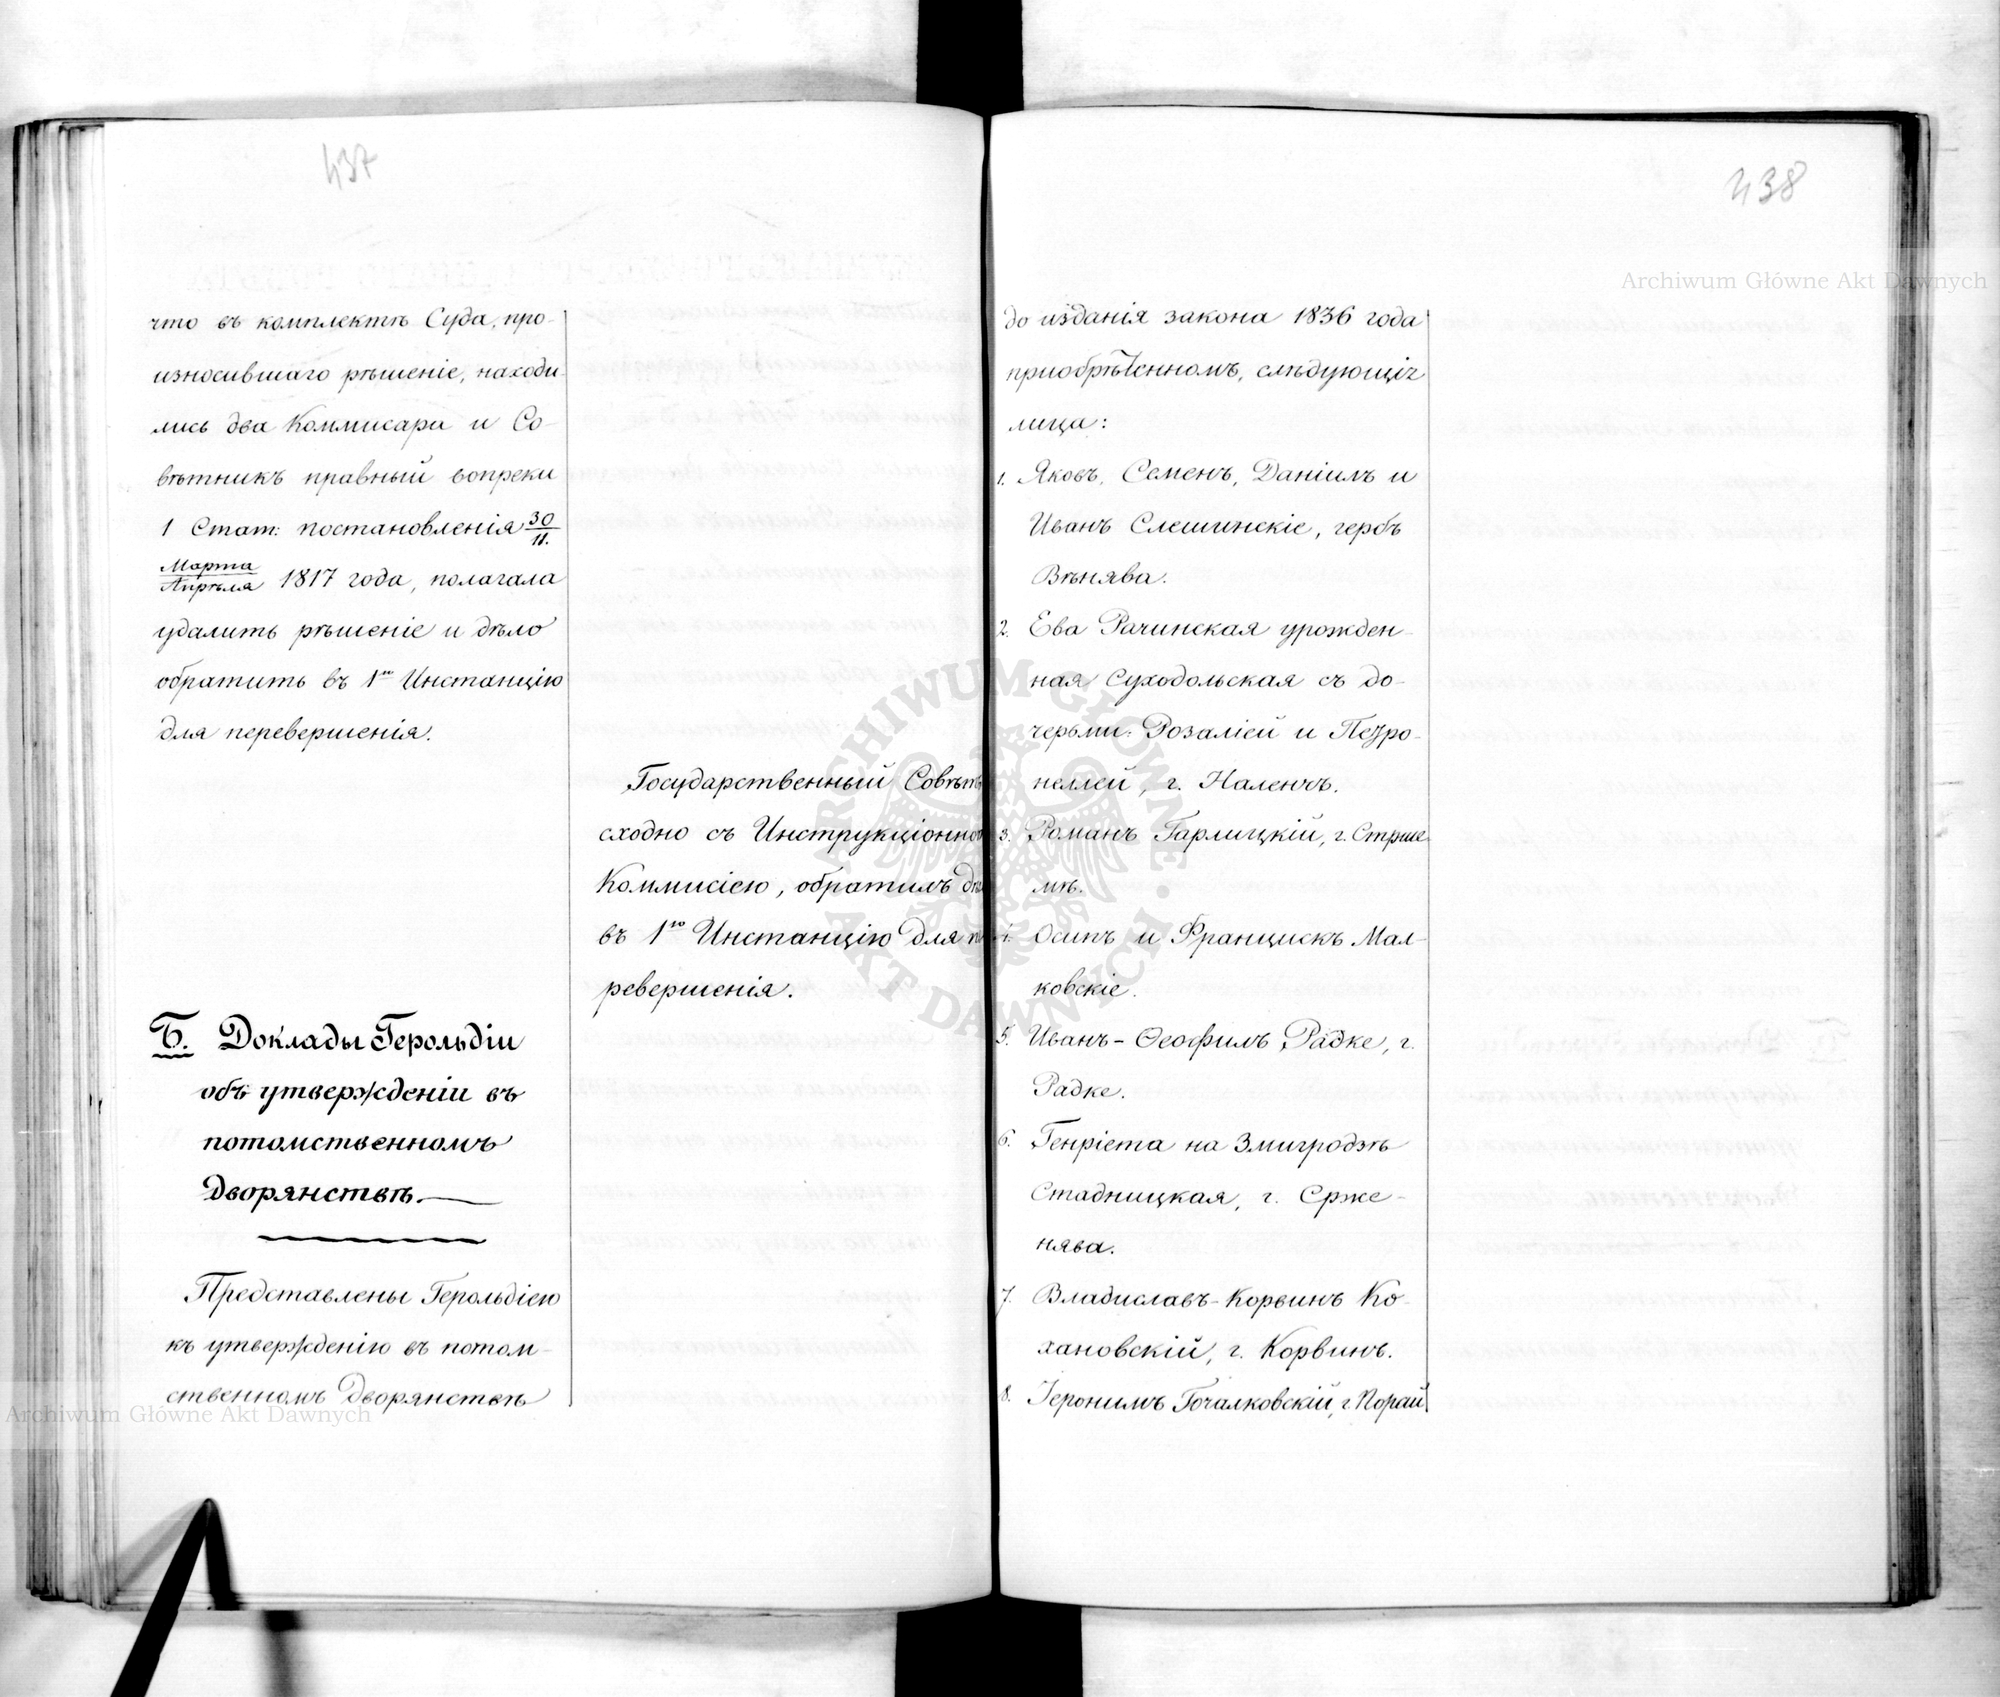 437
что въ комплектѣ Суда, про-
износившаго рѣшеніе, находи-
лись два Коммисари и Со-
вѣтникъ правный вопреки
1 Стат: постановленія 30/11.
Марта/Апрѣля 1817 года, полагала
удалить рѣшеніе и дѣло
обратить въ 1ю Инстанцію
для перевершенія.
Государственный Совѣтъ
сходно съ Инструкціонною
Коммисіею, обратилъ дѣ
въ 1ю Инстанцію для п
ревершенія.
Б. Доклады Герольдіи
объ утвержденіи въ
потомственномъ
Дворянствѣ.
Представлены Герольдіею
къ утвержденію въ потом-
ственномъ Дворянствѣ
438
до изданія закона 1836 года
приобрѣтенномъ, слѣдующія
лица:
1. Яковъ, Семенъ, Даніилъ и
Иванъ Слешинскіе, гербъ
Вѣнява.
2. Ева Рачинская урожден-
ная Суходольская съ до-
черьми: Розаліей и Петро-
неллей, г. Наленчъ.
3. Романъ Гарлицкій, г. Стрше
мѣ.
4. Осипъ и Францискъ Мал-
ковскіе.
5. Иванъ-Ѳеофилъ Радке, г.
Радке.
6. Генріета на Змигродзѣ
Стадницкая, г. Срже-
нява.
7. Владиславъ-Корвинъ Ко-
хановскій, г. Корвинъ.
8. Іеронимъ Гочалковскій, г. Порай
Archiwum Główne Akt Dawnych
ARCHIWUM GŁÓWNE AKT DAWNYCH
Archiwum Główne Akt Dawnych